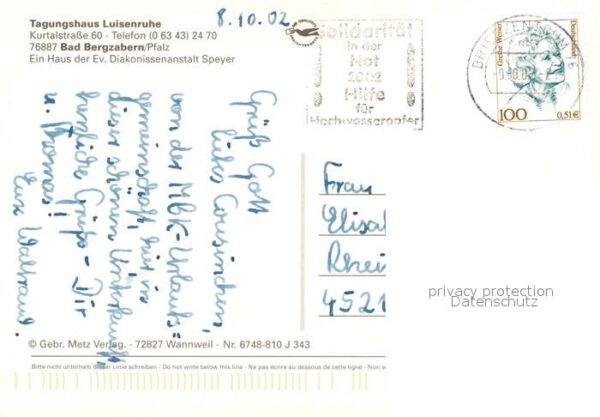 Tagungshaus Luisenruhe
Kurtalstraße 60 - Telefon (0 63 43) 24 70
76887 Bad Bergzabern/Pfalz
Ein Haus der Ev. Diakonissenanstalt Speyer
8.10.02
Solidarität
in der
Not
2002
Hilfe
für
Hochwasseropfer
BRIEFZENTRUM
Grethe Weiser
Deutschland
100
0,51 €
Grüß Gott
liebes Cousinchen,
von der MBK-Urlaubs=
gemeinschaft, hier in
dieser schönen Unterkunft
herzliche Grüße - Dir
u. Thomas!
Eure Waltraud.
Frau
Elisa
Rhei
4521
privacy protection
Datenschutz
© Gebr. Metz Verlag. - 72827 Wannweil - Nr. 6748-810 J 343
Bitte nicht unterhalb dieser Linie schreiben - Do not write below this line - Ne pas écrire au dessous de cette ligne - Non scri